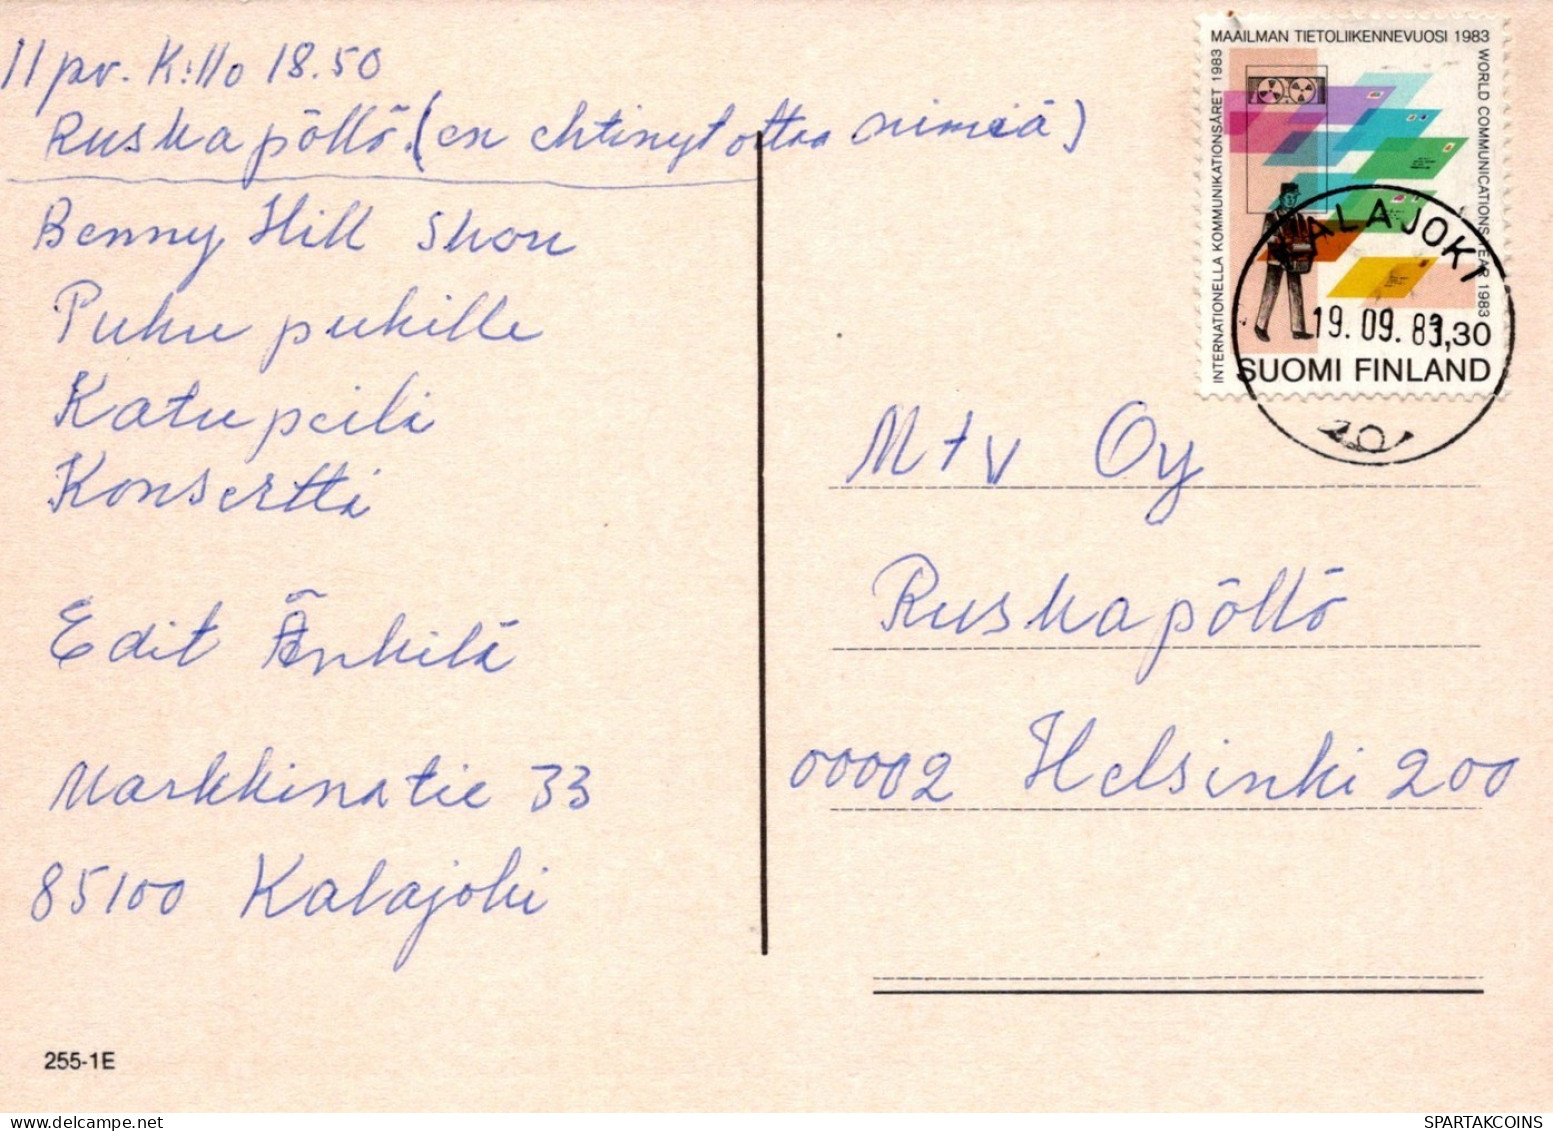 11 pv. K:llo 18.50
Ruskapöllö. (en ehtinyt ottaa nimiä)
Benny Hill Show
Puhu pukille
Katupeili
Konsertti
Edit Änkilä
Markkinatie 33
85100 Kalajoki
255-1E
MAAILMAN TIETOLIIKENNEVUOSI 1983
INTERNATIONELLA KOMMUNIKATIONSÅRET 1983
WORLD COMMUNICATIONS YEAR 1983
1,30
SUOMI FINLAND
ALAJOKI
19.09.83
Mtv Oy
Ruskapöllö
00002 Helsinki 200
SPARTAKCOINS.COM